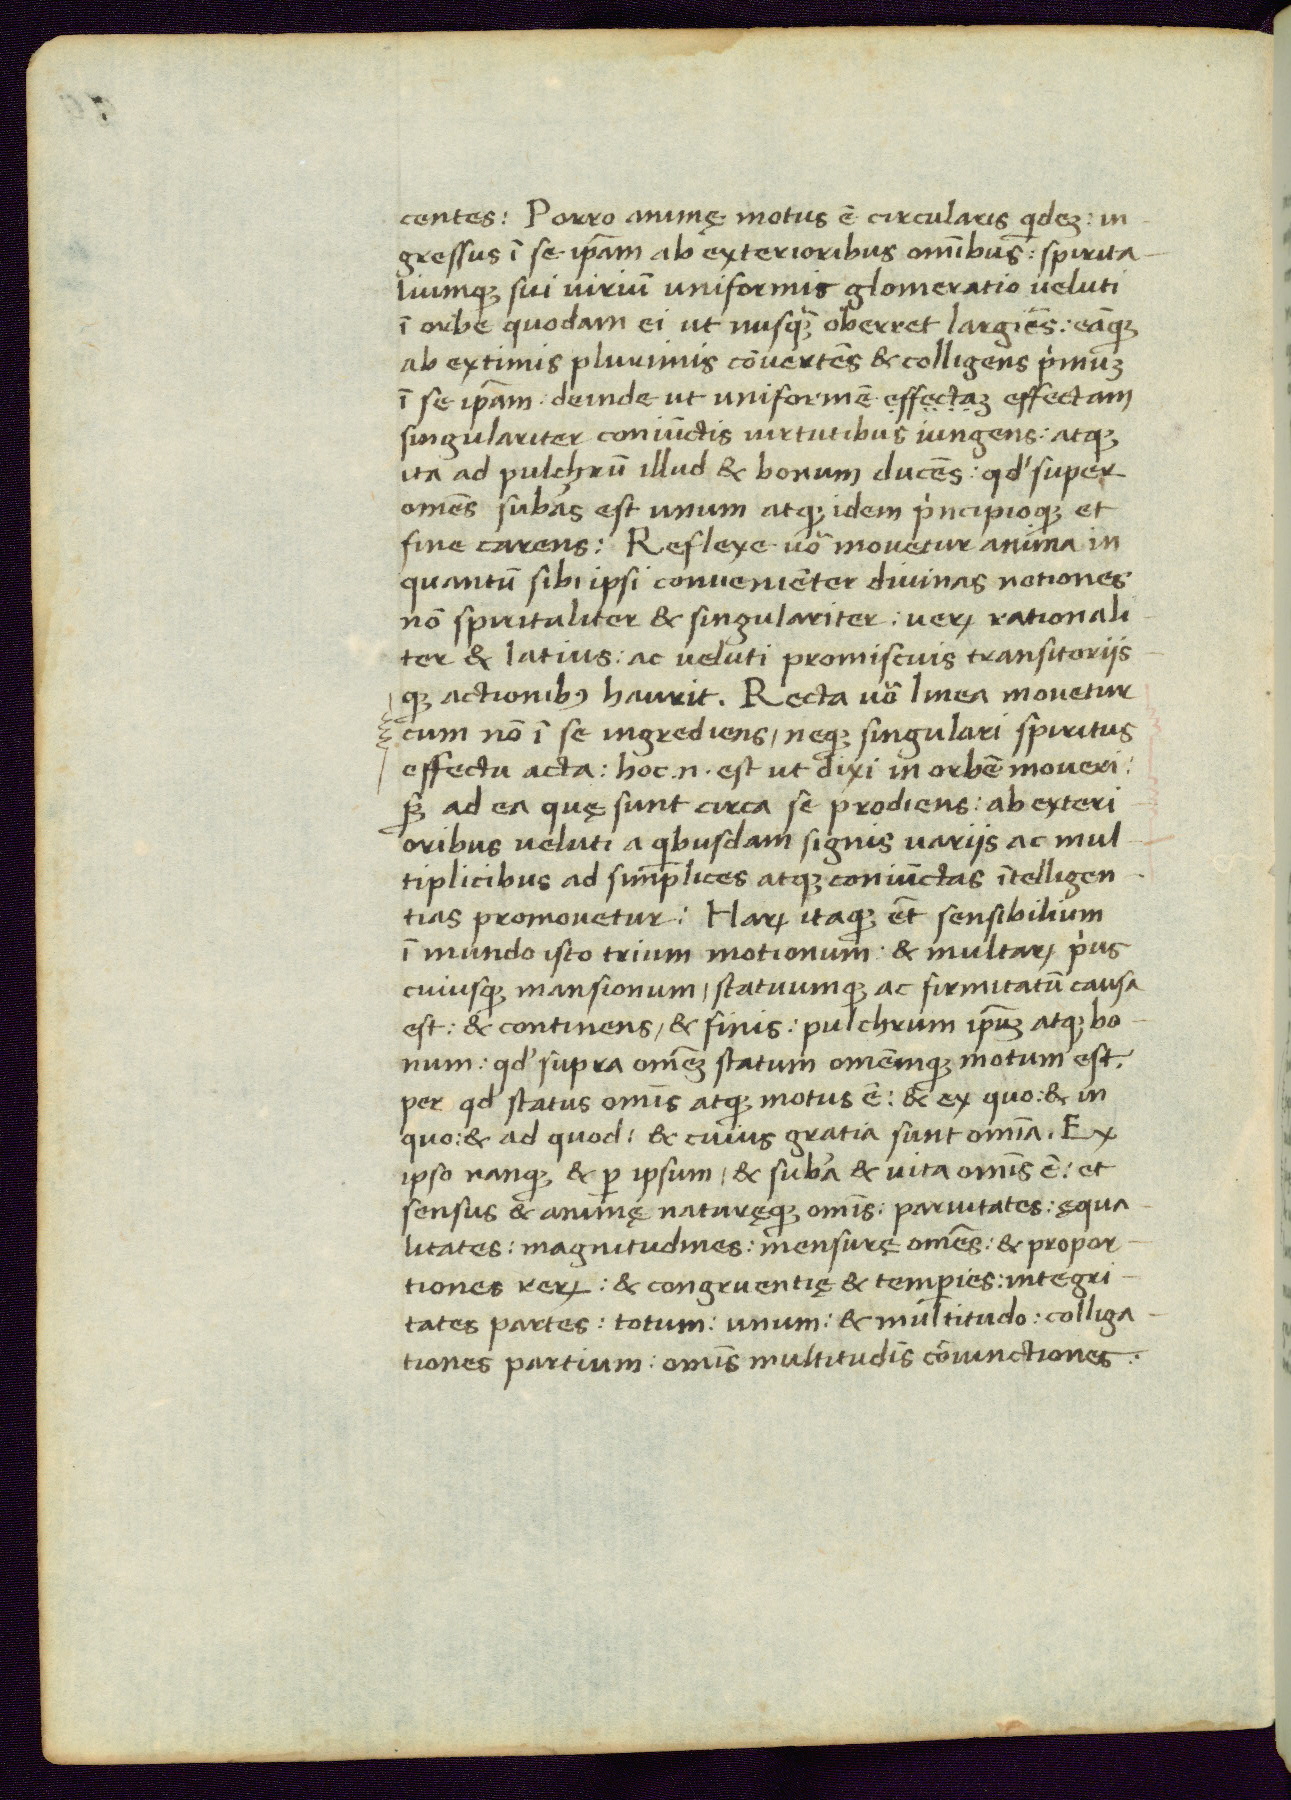 centes: Porro animę motus ē circularis qdeꝫ: in-
gressus ī se ip̄am ab exterioribus om̄ibus: spirita-
liumqꝫ sui uiriū uniformis glomeratio ueluti
ī orbe quodam ei ut nusqꝫ̄ oberret largiēs: eāqꝫ
ab extimis plurimis cōuertēs & colligens pͥmuꝫ
ī se ip̄am. deinde ut uniformē effectaꝫ effectam
singulariter coniūctis uirtutibus iungens: atqꝫ
ita ad pulchrū illud & bonum ducēs: qd' super
omēs subās est unum atqꝫ idem pͥncipioqꝫ et
fine carens: Reflexe uͦo mouetur anima in
quantū sibi ipsi conueniēter diuinas notiones
nō spiritaliter & singulariter: ueꝝ rationali-
ter & latius: ac ueluti promiscuis transitoriis-
qꝫ actionibꝰ haurit. Recta uͦo linea mouetur
cum nō ī se ingrediens, neqꝫ singulari spiritus
effectu acta: hoc .n. est ut dixi in orbē moueri:
sꝫ ad ea quę sunt circa se prodiens: ab exteri-
oribus ueluti a qbusdam signis uariis ac mul-
tiplicibus ad simplices atqꝫ coniūctas ītelligen-
tias promouetur: Haꝝ itaqꝫ ēt sensibilium
ī mundo isto trium motionum: & multaꝝ pͥus
cuiusqꝫ mansionum, statuumqꝫ ac firmitatū causa
est: & continens, & finis: pulchrum ip̄uꝫ atqꝫ bo-
num: qd' supra omēꝫ statum omēmqꝫ motum est.
per qd' status om̄is atqꝫ motus ē: & ex quo: & in
quo: & ad quod: & cuius gratia sunt om̄ia. Ex
ipso nanqꝫ & ꝑ ipsum, & subā & uita om̄is ē: et
sensus & animę naturęqꝫ om̄is: paruitates: ęqua-
litates: magnitudines: mensurę omēs: & propor-
tiones reꝝ: & congruentię & temperies: integri-
tates partes: totum: unum: & multitudo: colliga-
tiones partium: om̄is multitudīs cōiunctiones: